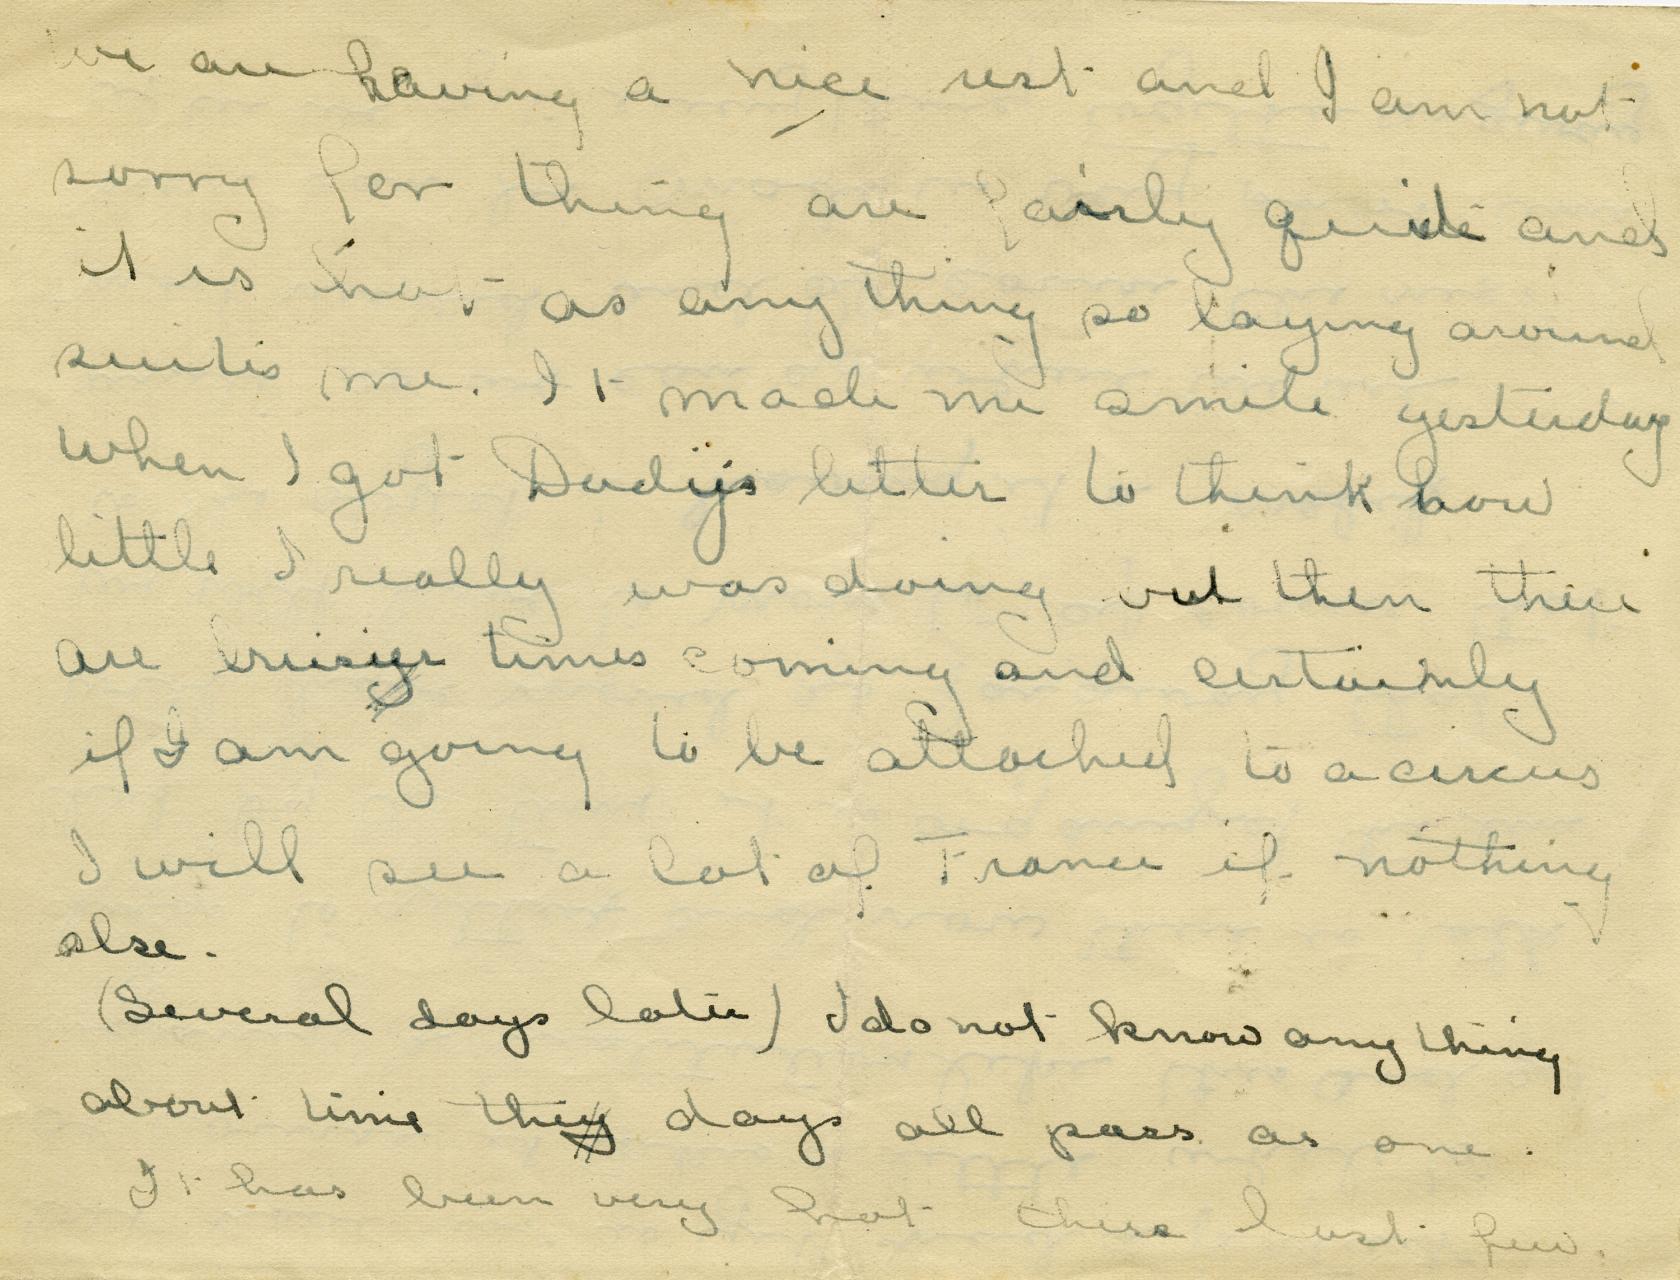 we are having a nice rest and I am not
sorry for thing are fairly quide and
it is hot as anything so laying around
suites me. It made me smile yesterday
when I got Dadys letter to think how
little I really was doing but then there
are busier times coming and certainly
if I am going to be attached to a circus
I will see a lot of France if nothing
else.
(Several days later) I do not know anything
about time the days all pass as one.
It has been very hot these last few